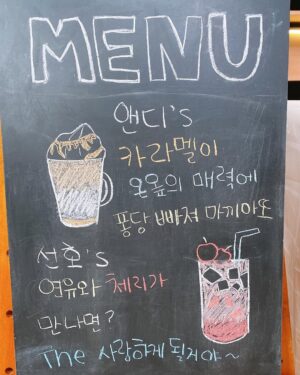 MENU
앤디's
카라멜이
온몸의 매력에
퐁당 빠져 마끼아또
선호's
여유와 체리가
만나면?
The 사랑하게 될거야~